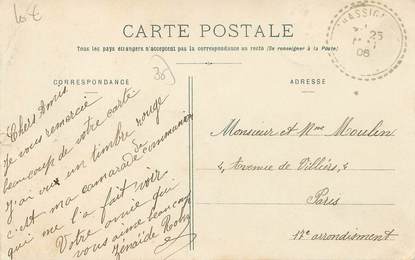 10€
CARTE POSTALE
Tous les pays étrangers n'acceptent pas la correspondance au recto (Se renseigner à la Poste)
CORRESPONDANCE
ADRESSE
30
25
06
Chers Amis
Je vous remercie
beaucoup de votre carte
J'ai vu un timbre rouge
c'est ma camarade communion
qui me l'a fait voir
Votre amie qui
vous aime beaucoup
Zénaïde
Monsieur et Mme Moulin
4 Avenue de Villiers, 4
Paris
17e arrondisment